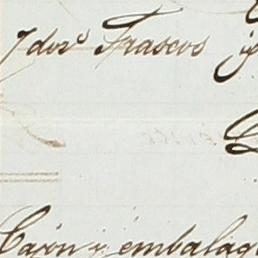 7 dos Frascos
Cajon y embalag